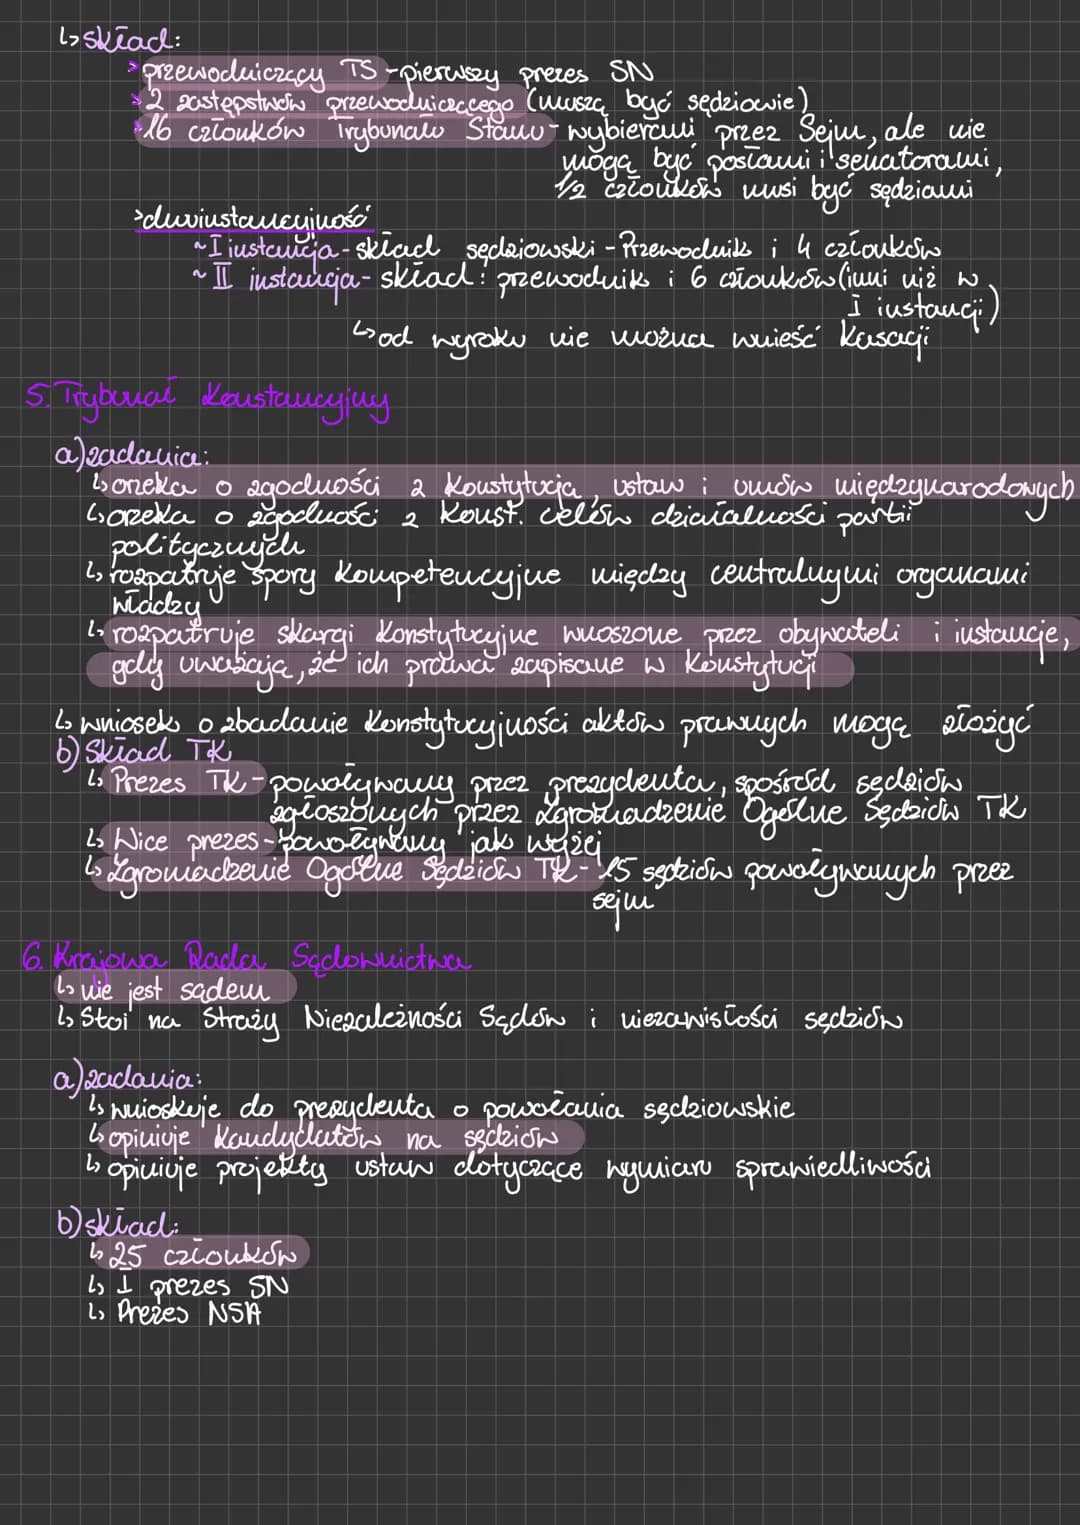 ↳ skład:
> przewodniczący TS - pierwszy prezes SN
> 2 zastępstwów przewodniczącego (muszą być sędziowie)
> 16 członków Trybunału Stanu - wybierani przez Sejm, ale nie
mogą być posłami i senatorami,
1/2 członków musi być sędziami
> dwuinstancyjność
~ I instancja - skład sędziowski - Przewodnik i 4 członków
~ II instancja - skład: przewodnik i 6 członków (inni niż w
I instancji)
↳ od wyroku nie można wnieść kasacji
5. Trybunał Konstancyjny
a) zadania:
↳ orzeka o zgodności z Konstytucją, ustaw i umów międzynarodowych
↳ orzeka o zgodności z Konst. celów działalności partii
politycznych
↳ rozpatruje spory kompetencyjne między centralnymi organami
władzy
↳ rozpatruje skargi konstytucyjne wnoszone przez obywateli i instancje,
gdy uważają, że ich prawa zapisane w Konstytucji
↳ wniosek o zbadanie konstytucyjności aktów prawnych mogą złożyć
b) Skład TK
↳ Prezes TK - powoływany przez prezydenta, spośród sędziów
zgłoszonych przez Zgromadzenie Ogólne Sędziów TK
↳ Wice prezes - powoływany jak wyżej
↳ Zgromadzenie Ogólne Sędziów TK - 15 sędziów powoływanych przez
sejm
6. Krajowa Rada Sądownictwa
↳ nie jest sądem
↳ Stoi na Straży Niezależności Sądów i niezawisłości sędziów
a) zadania:
↳ wnioskuje do prezydenta o powołania sędziowskie
↳ opiniuje kandydatów na sędziów
↳ opiniuje projekty ustaw dotyczące wymiaru sprawiedliwości
b) skład:
↳ 25 członków
↳ I prezes SN
↳ Prezes NSA